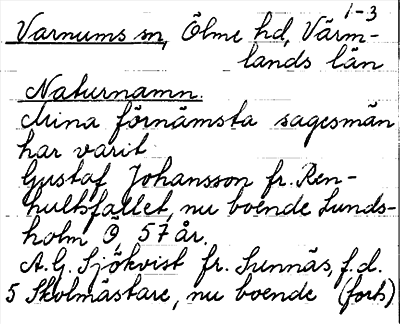 1-3
Varnums sn, Ölme hd, Värm-
lands län
Naturnamn.
Mina förnämsta sagesmän
har varit
Gustaf Johansson fr. Ren-
hultsfallet, nu boende Lunds-
holm Ö, 57 år.
A.G. Sjökvist fr. Sunnäs, f.d.
5 Skolmästare, nu boende (forts)